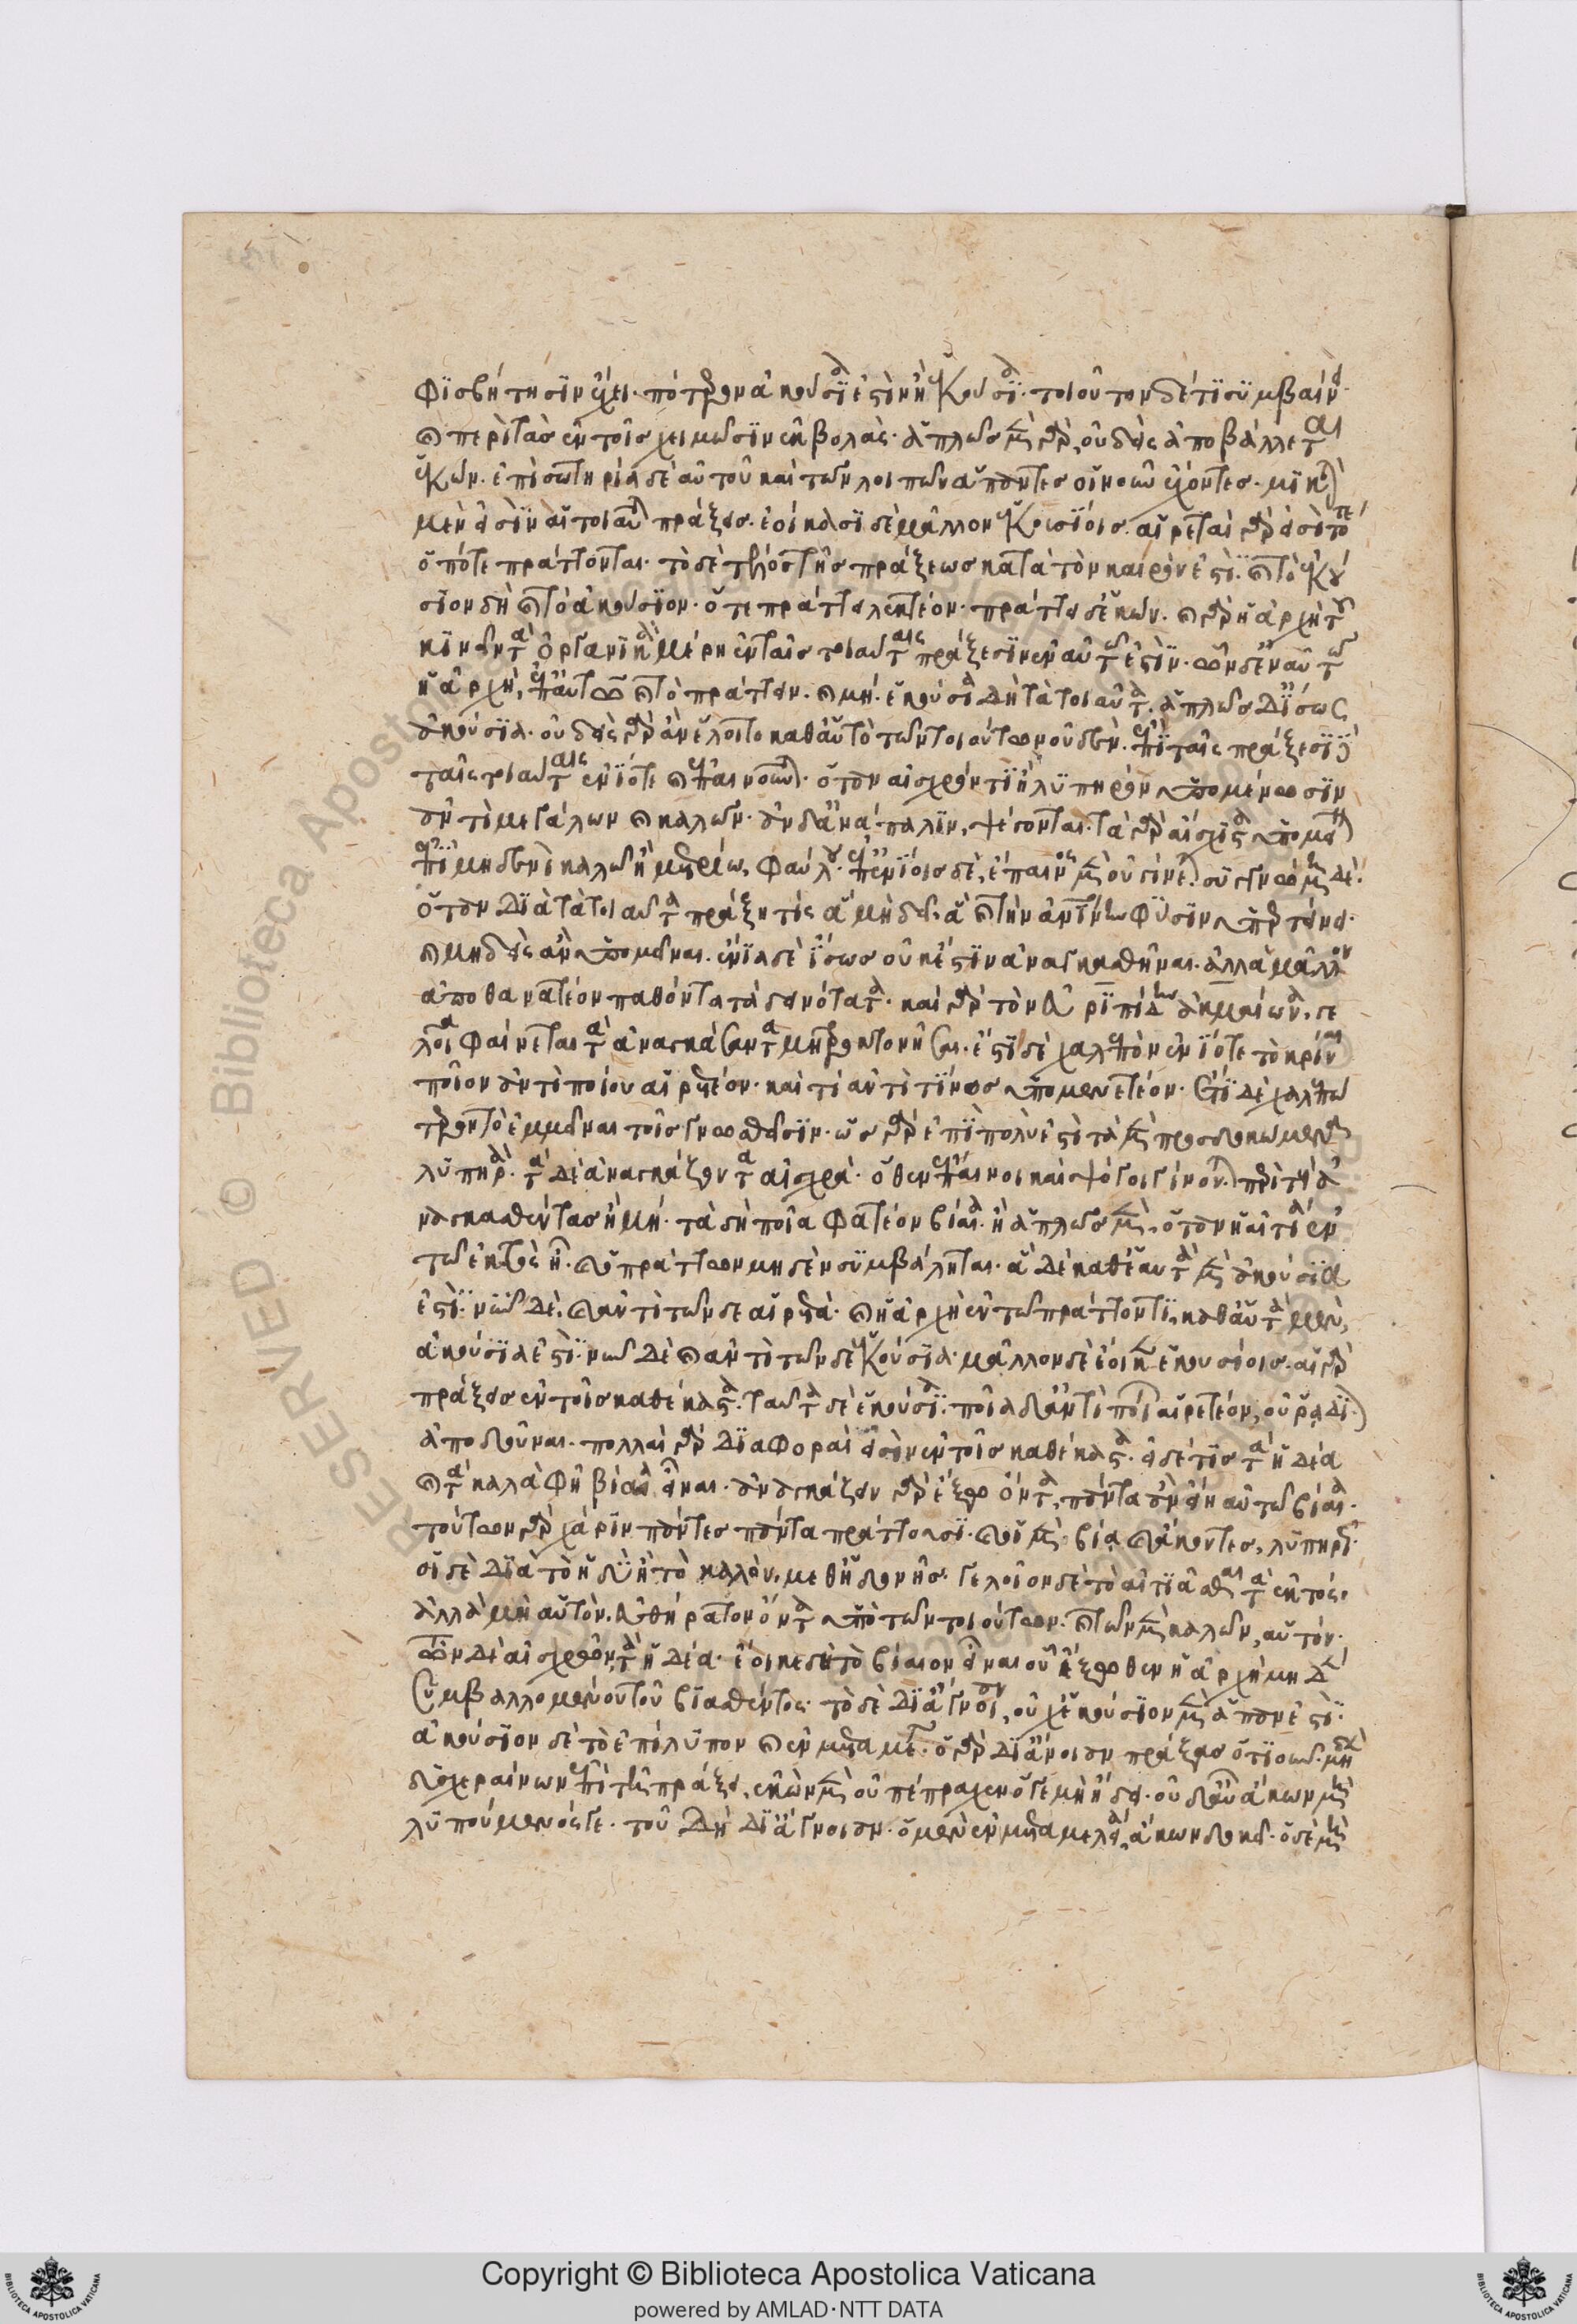 φισβήτησιν ἔχει· πότερον ἀκούσιά ἐστιν ἢ ἑκούσια· τοιοῦτον δέ τι συμβαίνει
καὶ περὶ τὰς ἐν τοῖς χειμῶσιν ἐκβολάς· ἁπλῶς μὲν γὰρ, οὐδεὶς ἀποβάλλεται
ἑκών· ἐπὶ σωτηρία δὲ αὑτοῦ καὶ τῶν λοιπῶν ἅπαντες οἱ νοῦν ἔχοντες· μικταὶ
μὲν εἰσὶν αἱ τοιαῦται πράξεις· ἐοίκασι δὲ μᾶλλον ἑκουσίοις· αἱρεταὶ γάρ εἰσι τότε
ὁπότε πράττονται· τὸ δὲ τέλος τῆς πράξεως κατὰ τὸν καιρόν ἐστι· καὶ τὸ ἑκού
σιον δὴ καὶ τὸ ἀκούσιον· ὅτε πράττει λεκτέον· πράττει δὲ ἑκών· καὶ γὰρ ἡ ἀρχὴ τοῦ
κινεῖν τὰ ὀργανικὰ μέρη ἐν ταῖς τοιαύταις πράξεσιν ἐν αὐτῷ ἐστιν· ὧν δ' ἐν αὐτῷ
ἡ ἀρχὴ, ἐπ' αὐτῷ καὶ τὸ πράττειν· καὶ μή· ἑκούσια δὴ τὰ τοιαῦτα· ἁπλῶς δ' ἴσως
ἀκούσια· οὐδεὶς γὰρ ἂν ἕλοιτο καθ' αὑτὸ τῶν τοιούτων οὐδέν· ἐπὶ ταῖς πράξεσι δὲ
ταῖς τοιαύταις ἐνίοτε καὶ ἐπαινοῦνται· ὅταν αἰσχρόν τι ἢ λυπηρὸν ὑπομένωσιν
ἀντὶ μεγάλων καὶ καλῶν· ἂν δ' ἀνάπαλιν, ψέγονται· τὰ γὰρ αἴσχιστα ὑπομεῖναι
ἐπὶ μηδενὶ καλῷ ἢ μετρίῳ, φαύλου· ἐπ' ἐνίοις δὲ, ἔπαινος μὲν οὐ γίνεται· συγγνώμη δέ·
ὅταν διὰ τὰ τοιαῦτα πράξῃ τις ἃ μὴ δεῖ· ἃ τὴν ἀνθρωπίνην φύσιν ὑπερτείνει·
καὶ μηδεὶς ἂν ὑπομεῖναι· ἔνια δὲ ἴσως οὐκ ἔστιν ἀναγκασθῆναι· ἀλλὰ μᾶλλον
ἀποθανατέον παθόντα τὰ δεινότατα· καὶ γὰρ τὸν Εὐριπίδου ἀλκμαίωνα, γε
λοῖα φαίνεται τὰ ἀναγκάσαντα μητροκτονῆσαι· ἔστι δὲ χαλεπὸν ἐνίοτε τὸ κρῖναι
ποῖον ἀντὶ ποίου αἱρετέον· καὶ τί ἀντὶ τίνος ὑπομενετέον· ἔτι δὲ χαλεπώ
τερον τὸ ἐμμεῖναι τοῖς γνωσθεῖσιν· ὡς γὰρ ἐπὶ πολύ ἐστι τὰ μὲν προσδοκώμενα
λυπηρά· τὰ δὲ ἀναγκάζονται αἰσχρά· ὅθεν ἔπαινοι καὶ ψόγοι γίνονται περὶ τοὺς ἀ
ναγκασθέντας ἢ μή· τὰ δὴ ποῖα φατέον βίαια· ἢ ἁπλῶς μὲν, ὅταν ἡ αἰτία ἐν
τῷ ἐκτὸς ᾖ· καὶ ὁ πράττων μηδὲν συμβάληται· ἃ δὲ καθ' ἑαυτὰ μὲν ἀκούσια
ἐστι· νῦν δὲ, καὶ ἀντὶ τῶνδε αἱρετά· καὶ ἡ ἀρχὴ ἐν τῷ πράττοντι, καθ' αὑτὰ μὲν,
ἀκούσιά ἐστι· νῦν δὲ καὶ ἀντὶ τῶνδε ἑκούσια· μᾶλλον δὲ ἔοικεν ἑκουσίοις· αἱ γὰρ
πράξεις ἐν τοῖς καθέκαστα· ταῦτα δὲ ἑκούσια· ποῖα δ' ἀντὶ ποίων αἱρετέον, οὐ ῥᾴδιον
ἀποδοῦναι· πολλαὶ γὰρ διαφοραί εἰσιν ἐν τοῖς καθέκαστα· εἰ δέ τις τὰ ἡδέα
καὶ τὰ καλὰ φῇ βίαια εἶναι· ἀναγκάζειν γὰρ ἔξω ὄντα, πάντα ἂν εἴη αὐτῷ βίαια·
τούτων γὰρ χάριν πάντες πάντα πράττουσι· καὶ οἱ μὲν βίᾳ καὶ ἄκοντες, λυπηρῶς·
οἱ δὲ διὰ τὸ ἡδὺ ἢ τὸ καλὸν, μεθ' ἡδονῆς· γελοῖον δὲ τὸ αἰτιᾶσθαι τὰ ἐκτός·
ἀλλὰ μὴ αὑτὸν, εὐθήρατον ὄντα ὑπὸ τῶν τοιούτων· καὶ τῶν μὲν καλῶν, αὑτόν·
τῶν δὲ αἰσχρῶν, τὰ ἡδέα· ἔοικε δὲ τὸ βίαιον εἶναι οὗ ἔξωθεν ἡ ἀρχὴ μηδὲν
συμβαλλομένου τοῦ βιασθέντος· τὸ δὲ δι' ἄγνοιαν, οὐχ ἑκούσιον μὲν ἅπαν ἐστί·
ἀκούσιον δὲ τὸ ἐπίλυπον καὶ ἐν μεταμελείᾳ· ὁ γὰρ δι' ἄγνοιαν πράξας ὁτιοῦν· μηδὲν
δυσχεραίνων ἐπὶ τῇ πράξει, ἑκὼν μὲν οὐ πέπραχεν ὅ γε μὴ ᾔδει· οὐδ' αὖ ἄκων μὴ
λυπούμενός γε· τοῦ δὴ δι' ἄγνοιαν· ὁ μὲν ἐν μεταμελείᾳ, ἄκων δοκεῖ· ὁ δὲ μὴ